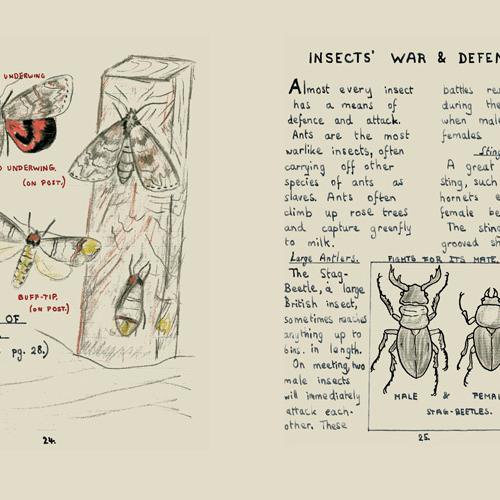 UNDERWING
UNDERWING.
(ON POST.)
BUFF-TIP.
(ON POST.)
OF
pg. 28.)
24.
INSECTS' WAR & DEFEN
Almost every insect
has a means of
defence and attack.
Ants are the most
warlike insects, often
carrying off other
species of ants as
slaves. Ants often
climb up rose trees
and capture greenfly
to milk.
Large Antlers.
The Stag-
Beetle, a large
British insect,
sometimes reaches
anything up to
6ins. in length.
On meeting, two
male insects
will immediately
attack each-
other. These
battles res
during the
when male
females.
Sting
A great
sting, such
hornets e
female be
The sting
grooved sh
FIGHTS FOR ITS MATE.
MALE & FEMAL
STAG-BEETLES.
25.